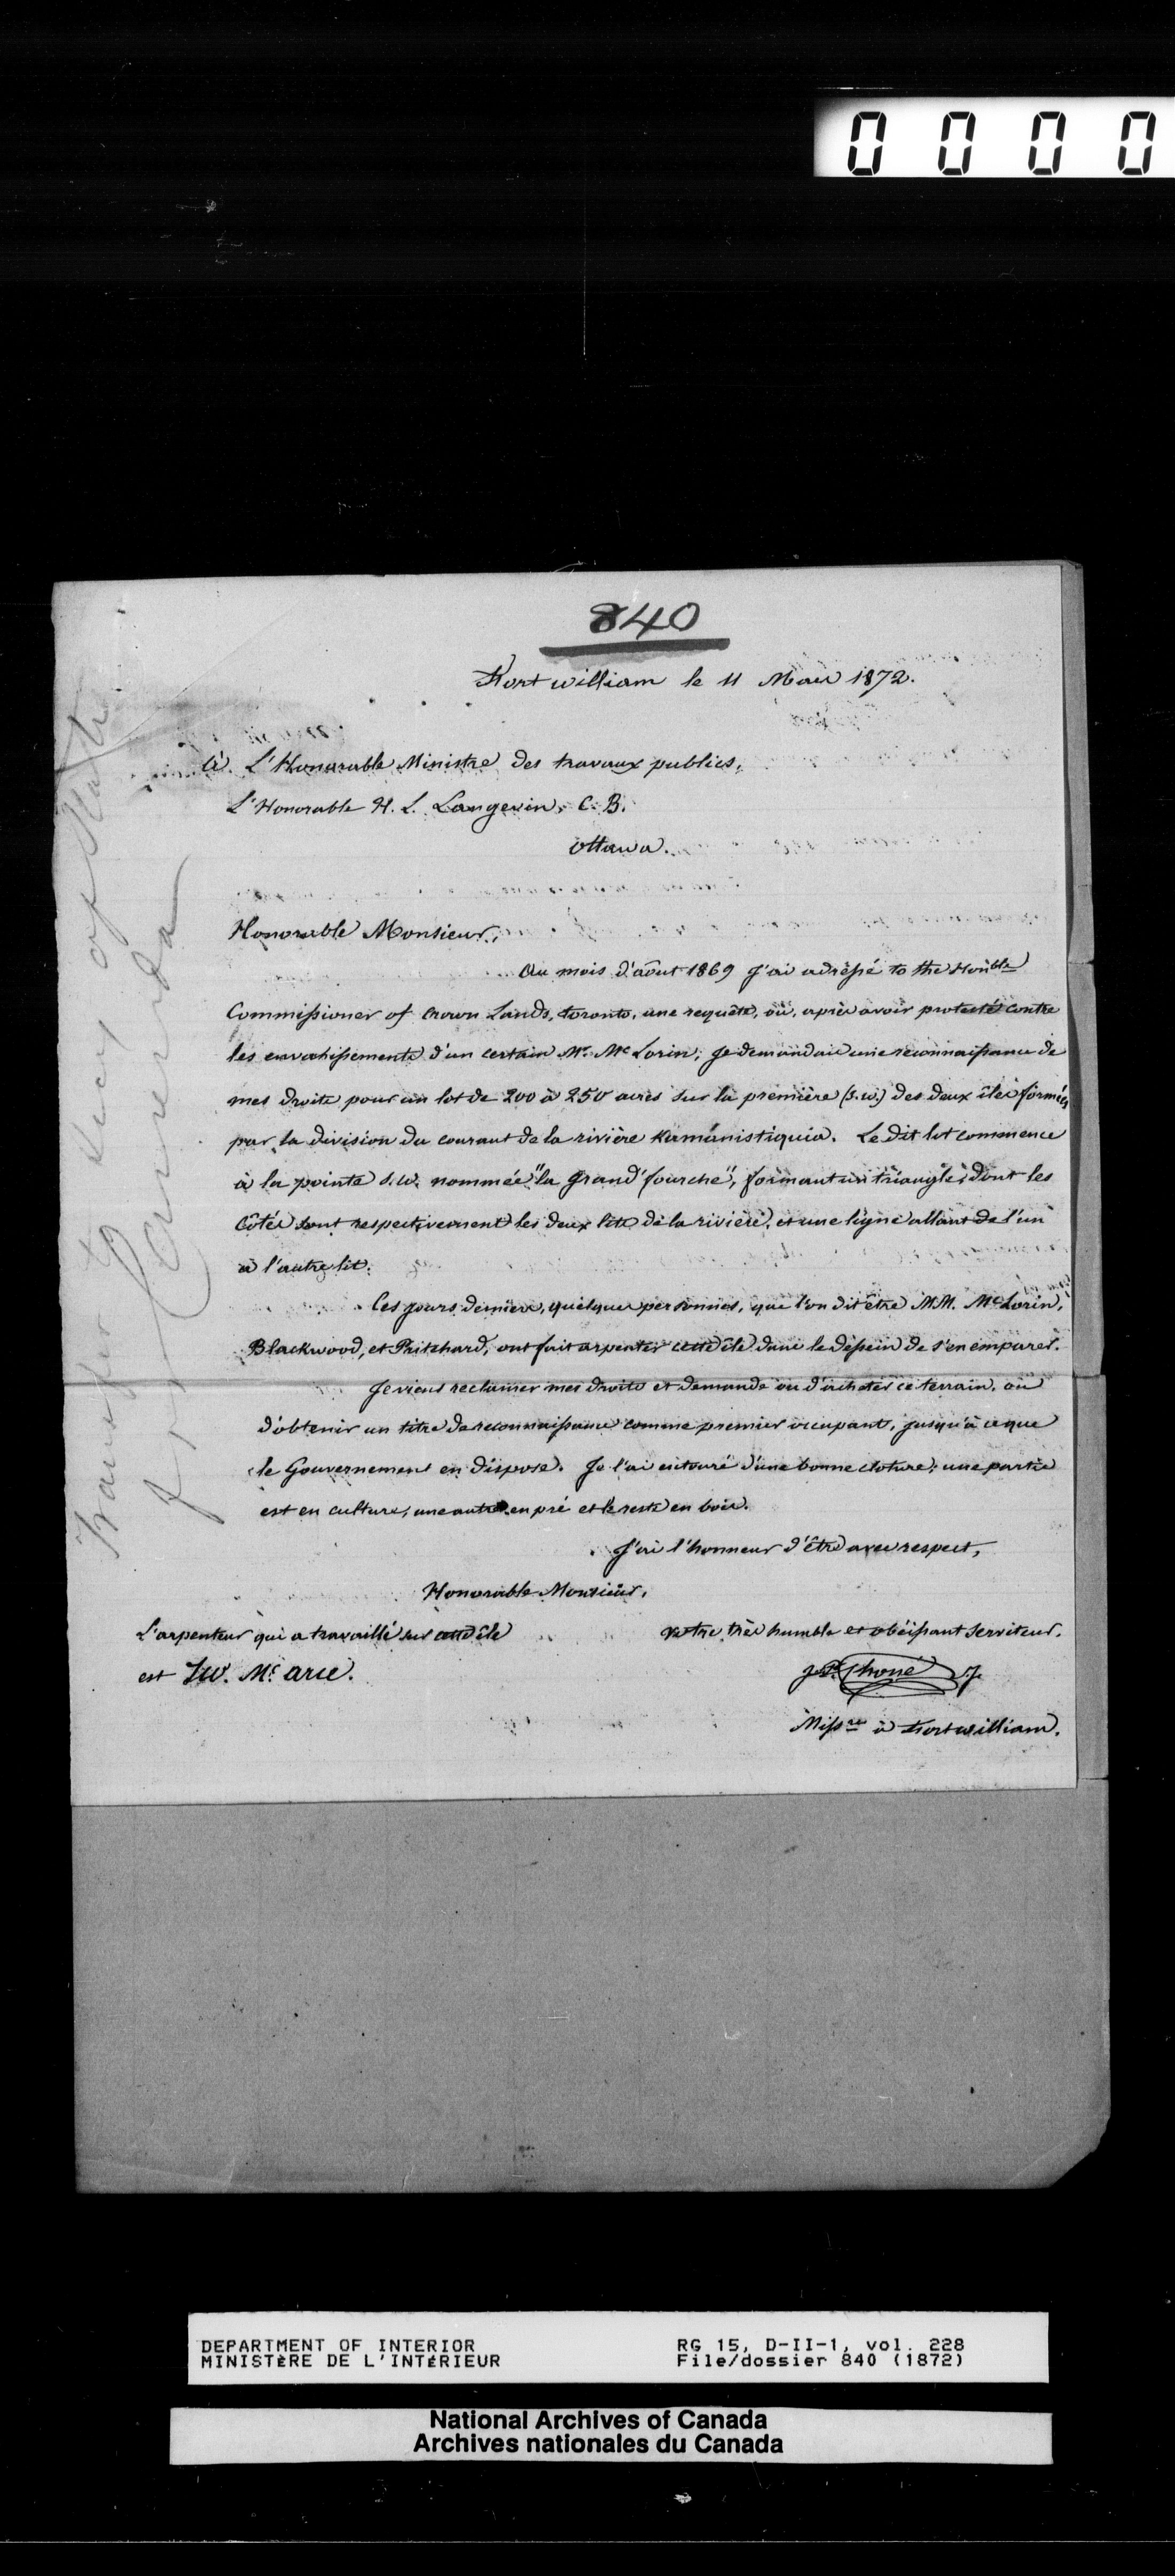 0 0 0 0
840
Fort william le 11 Mars 1872.
à L'Honorable Ministre des travaux publics,
L'Honorable H. L. Langevin, C. B.
Ottawa.
Honorable Monsieur,
Au mois d'août 1869 j'ai adressé to the Honble
Commissioner of Crown Lands, toronto, une requête, où, après avoir protesté contre
les envahissements d'un certain Mr. Mc Lorin, je demandais une reconnaissance de
mes droits pour un lot de 200 à 250 acres sur la première (s.w.) des deux îles formées
par la division du courant de la rivière Kamanistiquia. Le dit lot commence
à la pointe s.w. nommée "la grand' fourche", formant un triangle, dont les
côtés sont respectivement les deux lits de la rivière, et une ligne allant de l'un
à l'autre lit.
Ces jours derniers, quelques personnes, que l'on dit être MM. McLorin,
Blackwood, et Pritchard, ont fait arpenter cette île dans le dessein de s'en emparer.
Je viens reclamer mes droits et demande ou d'acheter ce terrain, ou
d'obtenir un titre de reconnaissance comme premier occupant, jusqu'à ce que
le Gouvernement en dispose. Je l'ai entouré d'une bonne cloture; une partie
est en culture, une autre en pré et le reste en bois.
J'ai l'honneur d'être avec respect,
Honorable Monsieur,
votre très humble et obéissant serviteur.
L'arpenteur qui a travaillé sur cette île
est
J. P. Choné s.j.
Missre à Fort william.
Transfer to Secy of State
for
DEPARTMENT OF INTERIOR
MINISTÈRE DE L'INTÉRIEUR
RG 15, D-II-1, vol. 228
File/dossier 840 (1872)
National Archives of Canada
Archives nationales du Canada